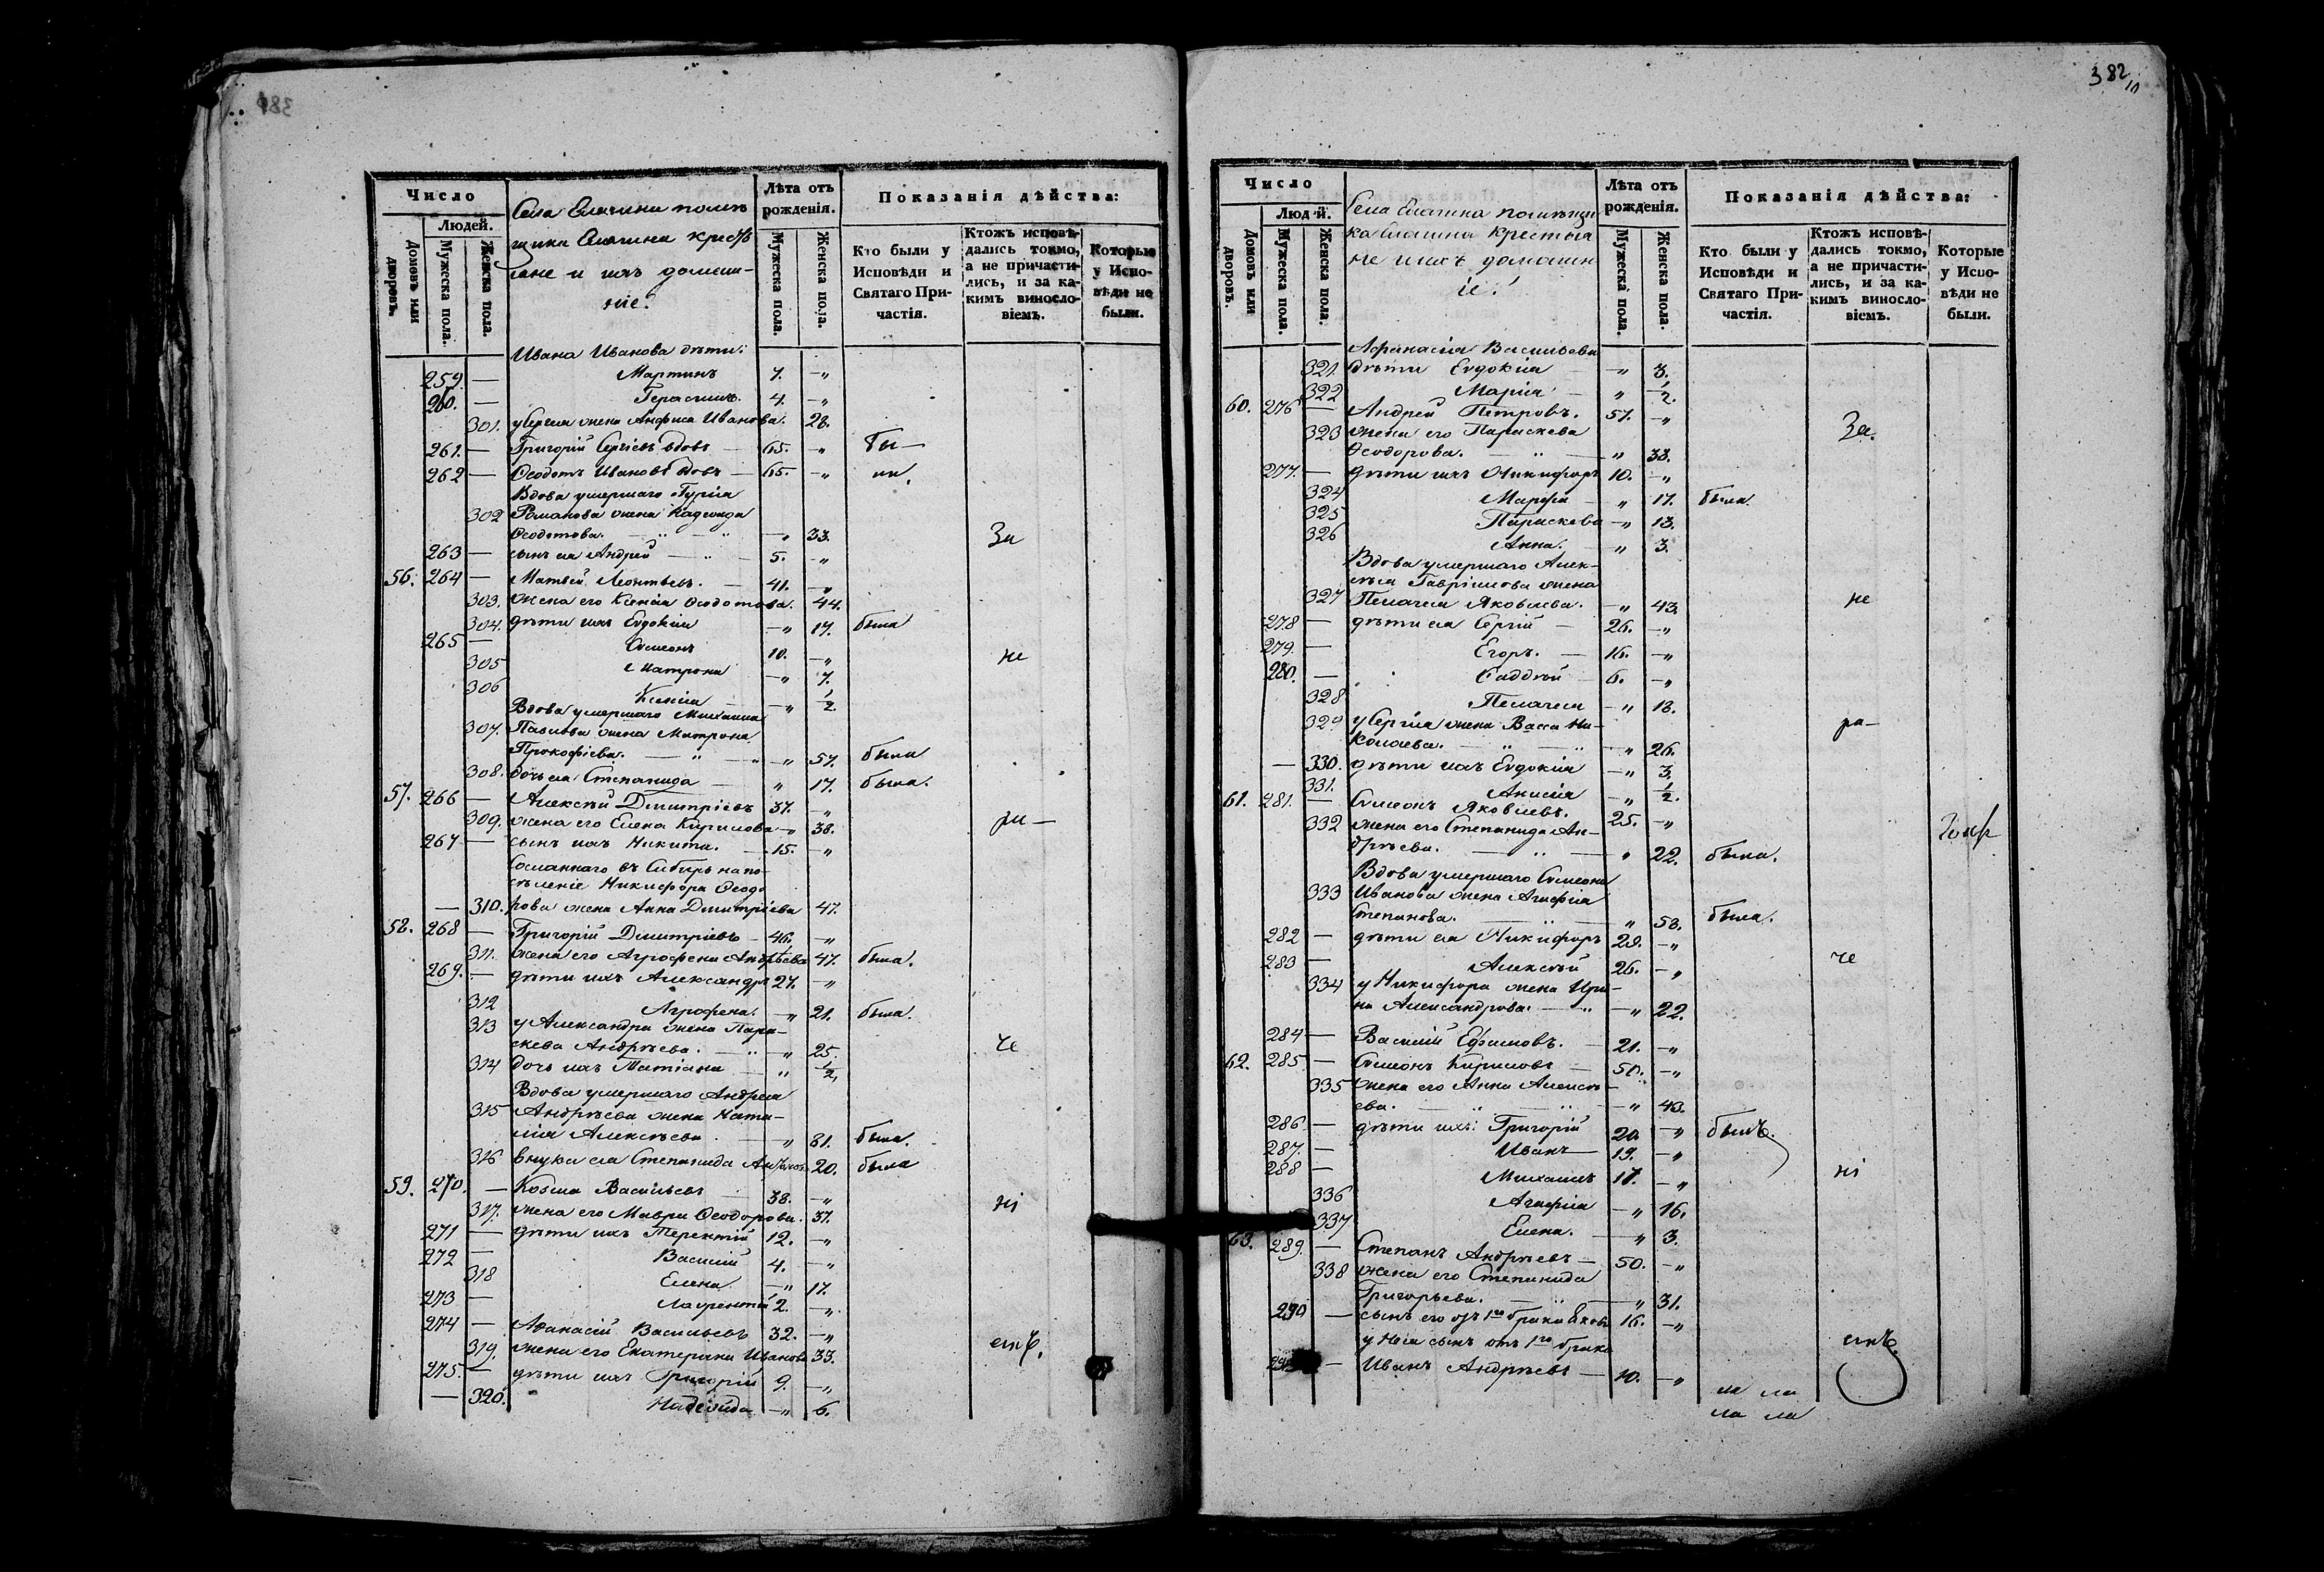 382
Число
Людей.
Домовъ или дворовъ.
Мужеска пола.
Женска пола.
Лѣта отъ рожденія.
Мужеска пола.
Женска пола.
Показанія дѣйства:
Кто были у Исповѣди и Святаго Причастія.
Ктожъ исповѣдались токмо, а не причастились, и за какимъ винословіемъ.
Которые у Исповѣди не были.
Села Елагина помѣ
щика Елагина крестья
яне и ихъ домаш-
ніе:
Ивана Иванова дѣти:
259. — Мартинъ 7. — „
260. — Герасимъ. 4. — „
301. у Сергія жена Анфиса Иванова. 28.
261. — Григорій Сергіевъ вдовъ — 65. — „ бы—
262 — Ѳеодотъ Ивановъ вдовъ — 65. — „ ли.
Вдова умершаго Гурія
302 Романова жена Надежда
Ѳеодотова. — „ 33. За
263 — сынъ ея Андрей — 5. — „
56. 264 — Матвей Леонтьевъ. — 41. — „
303. жена его Ксенія Ѳеодотова. 44.
304. дѣти ихъ Евдокія — „ 17. была
265 — Симеонъ 10. — „
305 Матрона — „ 7. не
306 Ксенія — „ 1/2.
Вдова умершаго Михаила
307. Павлова жена Матрона
Прокофіева. — „ 57. была
308. дочь ея Степанида — „ 17. была.
57. 266 — Алексѣй Димитріевъ 37. — „
309. жена его Елена Кирилова — „ 38. ра—
267 — сынъ ихъ Никита. — 15. — „
Сосланнаго въ Сибирь на по-
селеніе Никифора Ѳеодо
— 310. рова жена Анна Димитріева 47.
58. 268 — Григорій Димитріевъ — 46. — „
311. жена его Агрофена Андрѣева 47. была.
269. — дѣти ихъ Александръ 27. — „
312 Агрофена. — „ 21. была.
313 у Александра жена Пара-
скева Андрѣева. — „ 25. че
314 дочь ихъ Татіана — „ 1/2.
Вдова умершаго Андрея
315 Андрѣева жена Ната-
лія Алексѣева — „ 81. была.
316 внука ея Степанида 20. была
59. 270. — Козма Васильевъ 38. — „
317. жена его Мавра Ѳеодорова. 37. ні
271 — дѣти ихъ Терентій 12. — „
272 — Василій 4. — „
318 Елена — „ 17.
273 — Лаврентій 2. — „
274 — Афанасій Васильевъ 32. — „
319. жена его Екатерина Иванова 33. емъ.
275. — дѣти ихъ Григорій 9. — „
— 320. Надежда — „ 6.
Число
Людей.
Домовъ или дворовъ.
Мужеска пола.
Женска пола.
Лѣта отъ рожденія.
Мужеска пола.
Женска пола.
Показанія дѣйства:
Кто были у Исповѣди и Святаго Причастія.
Ктожъ исповѣдались токмо, а не причастились, и за какимъ винословіемъ.
Которые у Исповѣди не были.
Села Елагина помѣщи
ка Елагина крестья
не и ихъ домашн
іе:
Афанасія Васильева
321. дѣти Евдокія — „ 3.
322 Марія — „ 1/2.
60. 276 — Андрей Петровъ. 51. — „
323 жена его Параскева За
Ѳеодорова. — „ 33.
277. — дѣти ихъ Никифоръ 10. — „
324 Марфа — „ 17. была.
325 Параскева — „ 13.
326 Анна. — „ 3.
Вдова умершаго Алек-
сѣя Гавріилова жена
327 Пелагея Яковлева. — „ 43. не
278 — дѣти ея Сергій — 26. — „
279. — Егоръ. — 16. — „
280. — Фаддѣй 6. — „
328 Пелагея — „ 18.
329 у Сергія жена Васса Ни-
колаева. — „ 26. ра—
— 330. дѣти ихъ Евдокія — „ 3.
331. Анисія — „ 1/2.
61. 281. — Симеонъ Яковлевъ. 25. — „
332 жена его Степанида Ан-
дрѣева. — „ 22. была.
Вдова умершаго Симеона
333 Иванова жена Агафія
Степанова. — „ 58. была.
282 — дѣти ея Никифоръ 29. — „
283 — Алексѣй 26. — „ че
334 у Никифора жена Ири-
на Александрова. — „ 22.
284 — Василій Ефимовъ. — 21. — „
62. 285 — Симеонъ Кириловъ — 50. — „
335 жена его Анна Алексѣ-
ева. — „ 43.
286. — дѣти ихъ: Григорій 20. — „ былъ.
287. — Иванъ — 19. — „
288 — Михаилъ 17. — „ ні
336 Агафія — „ 16.
337 Елена. — „ 3.
63. 289. — Степанъ Андрѣевъ — 50. — „
338 жена его Степанида
Григорьева. — „ 31.
290 — сынъ его отъ 1го брака Яковъ 16. — „
у нея сынъ отъ 1го брака емъ.
— Иванъ Андрѣевъ — 10. — „